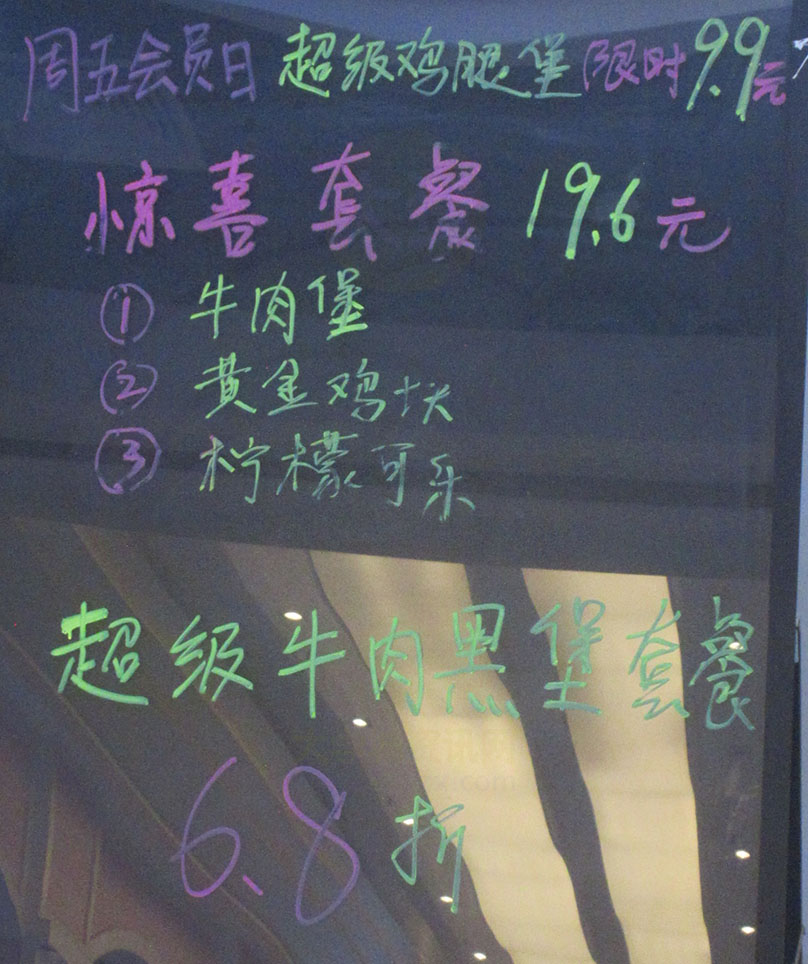 周五会员日 超级鸡腿堡限时9.9元
惊喜套餐 19.6元
① 牛肉堡
② 黄金鸡块
③ 柠檬可乐
超级牛肉黑堡套餐
6.8折